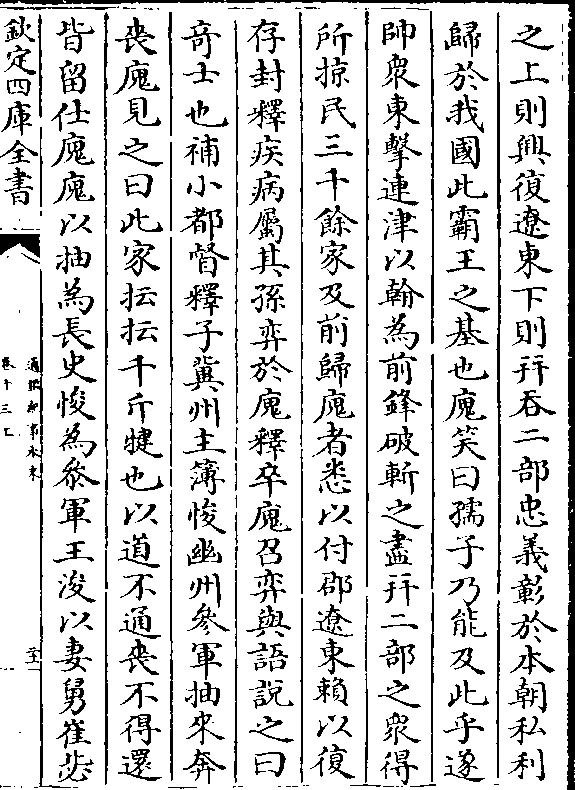 之上則興復遼東下則幷吞二部忠義彰於本朝私利
歸於我國此霸王之基也廆笑曰孺子乃能及此乎遂
帥衆東擊連津以翰為前鋒破斬之盡幷二部之衆得
所掠民三千餘家及前歸廆者悉以付郡遼東賴以復
存封釋疾病屬其孫弈於廆釋卒廆召弈與語說之曰
奇士也補小都督釋子冀州主簿悛幽州參軍抽來奔
喪廆見之曰此家抎抎千斤犍也以道不通喪不得還
皆留仕廆廆以抽為長史悛為參軍王浚以妻舅崔毖
欽定四庫全書
通鑑紀事本末
卷十三上